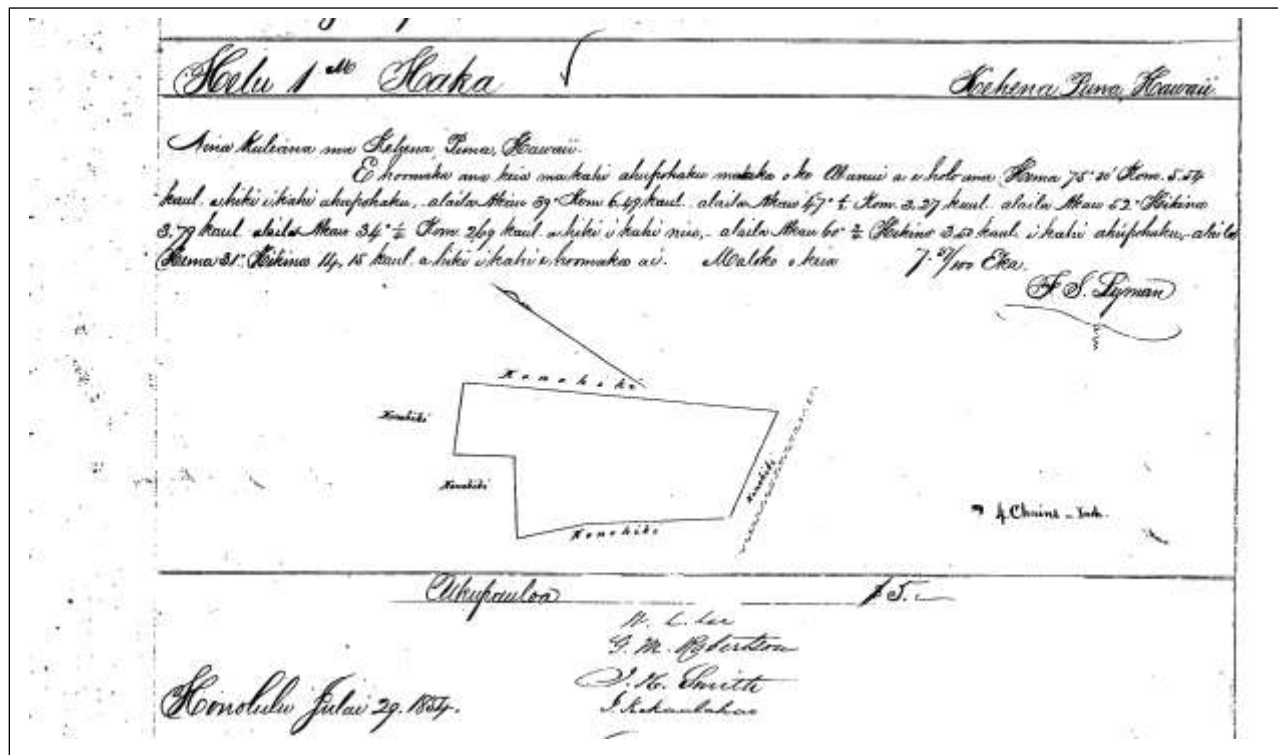 Helu 1 M Haka
Kehena Puna, Hawaii
Aina Kuleana ma Kehena, Puna, Hawaii.
E hoomaka ana keia ma kahi ahupohaku mauka o ke Alanui a e holo ana Hema 75° Kom. 5.54
kaul. a hiki i kahi ahupohaku, alaila Akau 39° Kom 6.49 kaul. alaila Akau 47° ½ Kom. 3,27 kaul. alaila Akau 52° Hikina
3.79 kaul alaila Akau 34° ½ Kom. 2,69 kaul. a hiki i kahi niu, - alaila Akau 60° ½ Hikina 3.50 kaul i kahi ahupohaku, - alaila
Hema 31° Hikina 14,15 kaul. a hiki i kahi i hoomaka ai. Maloko o keia 7. /100 Eka.
F. S. Lyman
Konohiki
Konohiki
Konohiki
Konohiki
Konohiki
4 Chains - Inch.
Ukupauloa $5.-
W. L. Lee
G. M. Robertson
J. H. Smith
J. Kekaulahao
Honolulu Julai 29. 1854.